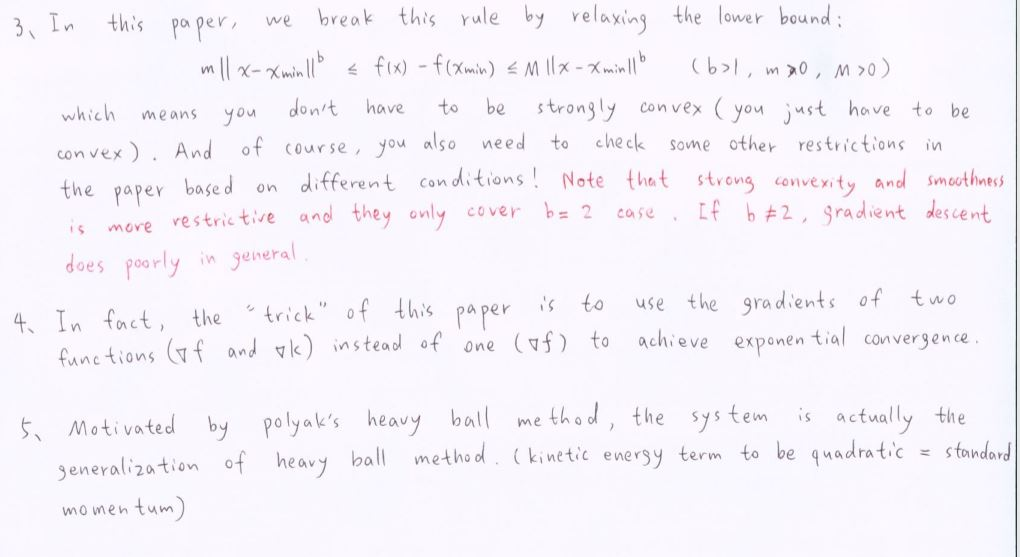 3、In this paper, we break this rule by relaxing the lower bound:
m||x-xmin||^b ≤ f(x) - f(xmin) ≤ M||x-xmin||^b (b>1, m>0, M>0)
which means you don't have to be strongly convex (you just have to be
convex). And of course, you also need to check some other restrictions in
the paper based on different conditions! Note that strong convexity and smoothness
is more restrictive and they only cover b=2 case. If b≠2, gradient descent
does poorly in general.
4、In fact, the "trick" of this paper is to use the gradients of two
functions (∇f and ∇k) instead of one (∇f) to achieve exponential convergence.
5、Motivated by polyak's heavy ball method, the system is actually the
generalization of heavy ball method. (kinetic energy term to be quadratic = standard
momentum)